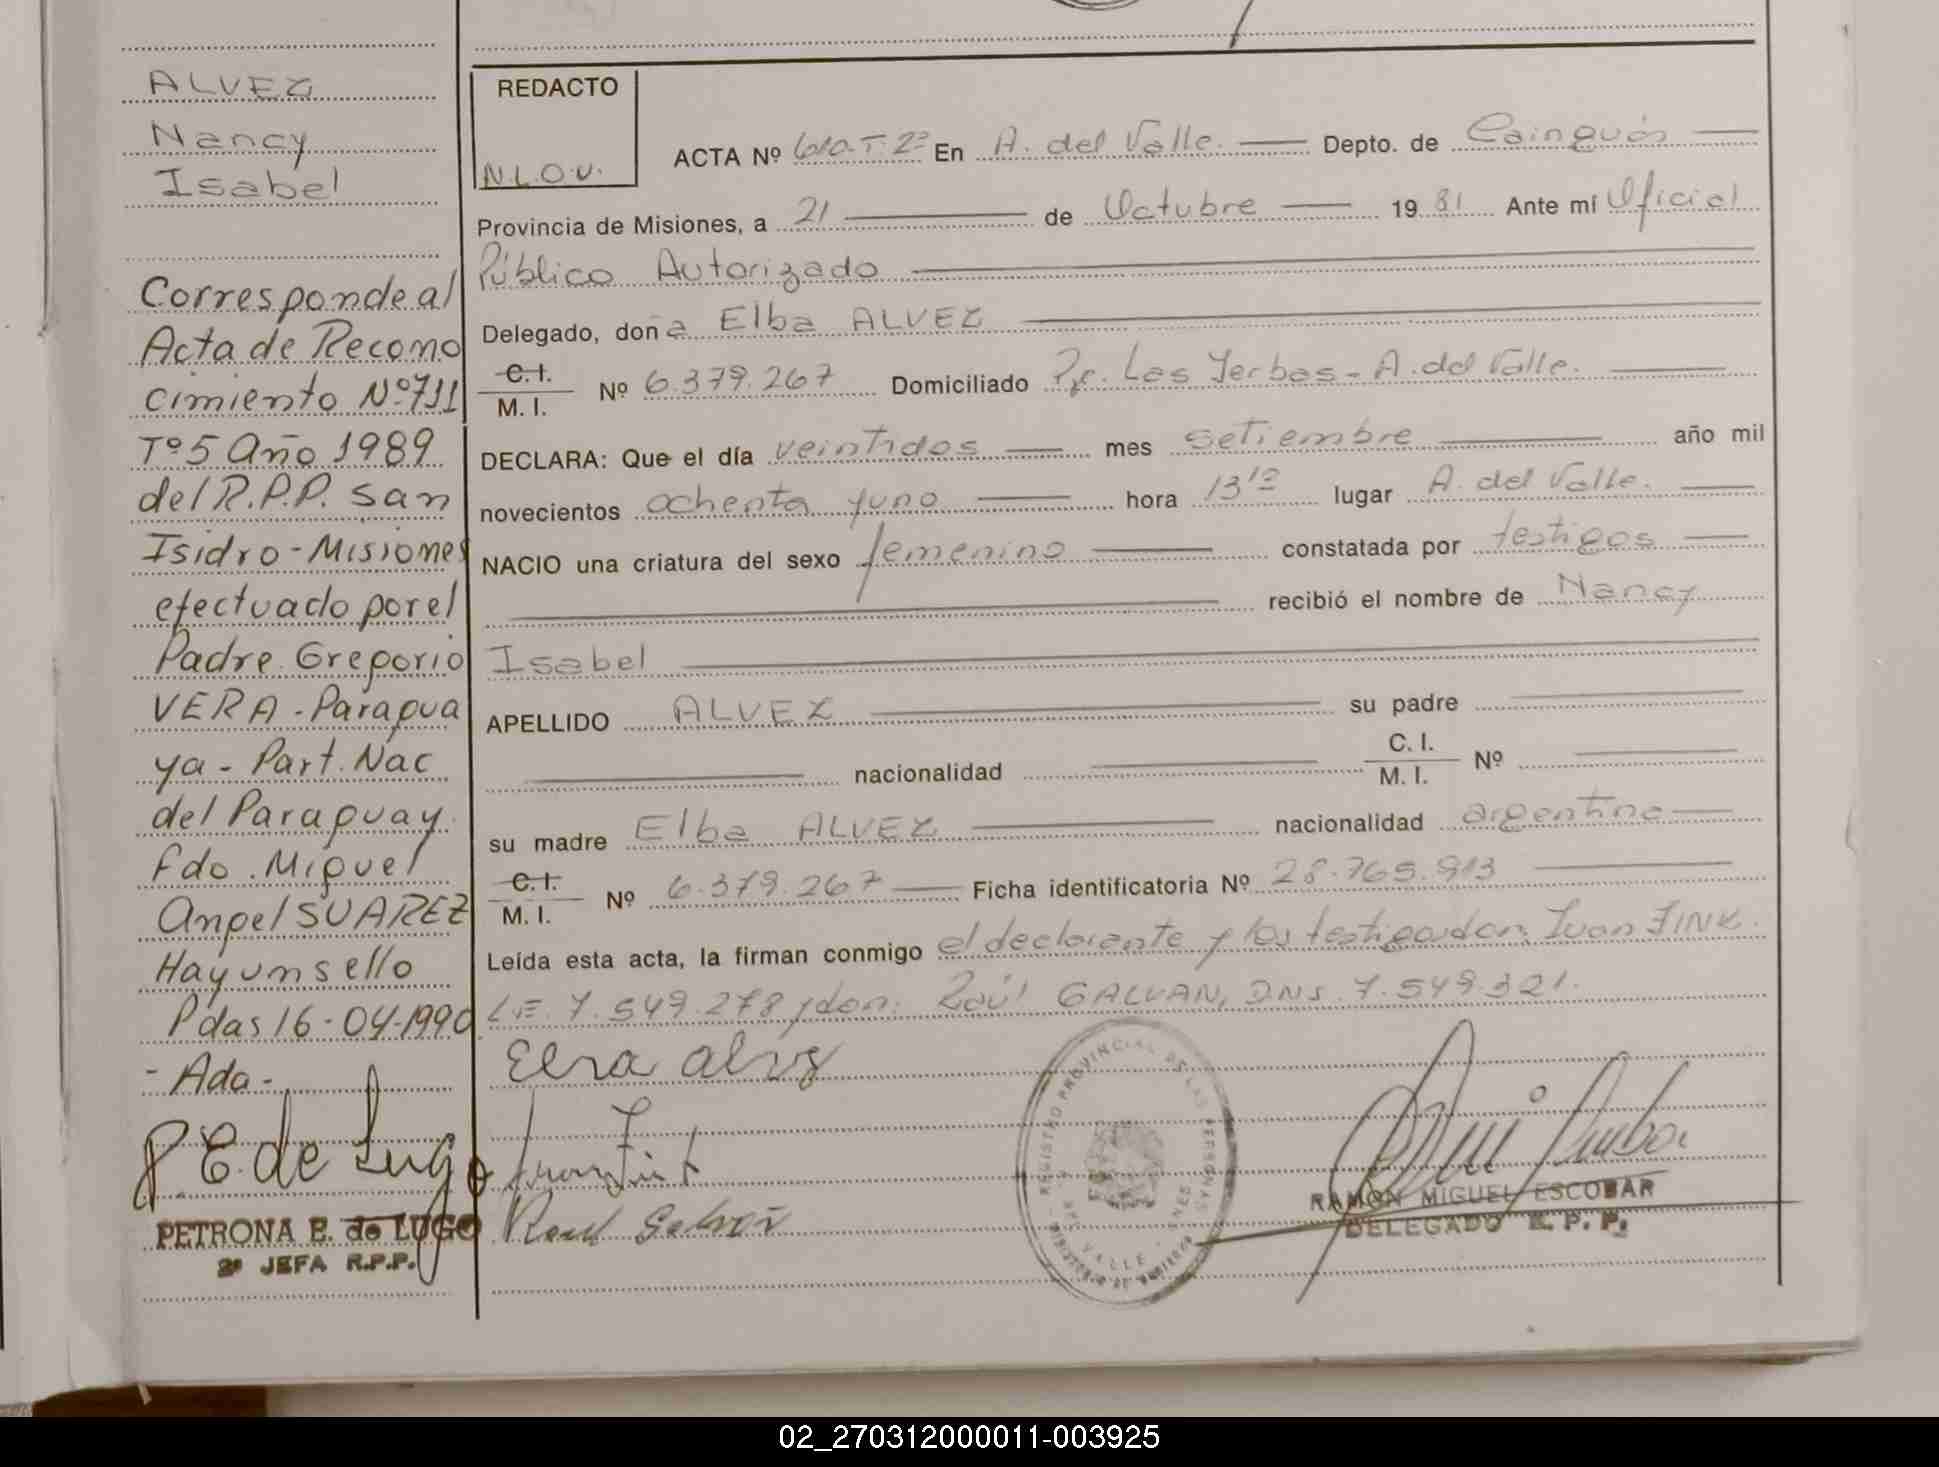 ALVEZ
Nancy
Isabel
Corresponde al
Acta de Recono
cimiento Nº 711
Tº 5 Año 1989
del R.P.P. san
Isidro - Misiones
efectuado por el
Padre Gregorio
VERA - Paragua
ya - Part. Nac
del Paraguay
Fdo. Miguel
Angel SUAREZ
Hay un sello
Pdas 16-04-1990
- Ada -
P E. de Lugo
PETRONA E. de LUGO
2ª JEFA R.P.P.
REDACTO
N.L.O.V.
ACTA Nº 610 T-2º En A. del Valle. Depto. de Cainguás
Provincia de Misiones, a 21 de Octubre 1981 Ante mí Oficial
Público Autorizado
Delegado, doña Elba ALVEZ
C.I.
M. I. Nº 6.379.267 Domiciliado Pje. Las Yerbas - A. del Valle.
DECLARA: Que el día veintidos mes setiembre año mil
novecientos ochenta yuno hora 13 lugar A. del Valle.
NACIO una criatura del sexo femenino constatada por testigos
recibió el nombre de Nancy
Isabel
APELLIDO ALVEZ su padre
nacionalidad C. I.
M. I. Nº
su madre Elba ALVEZ nacionalidad argentina
C.I.
M. I. Nº 6.379.267 Ficha identificatoria Nº 28.765.913
Leída esta acta, la firman conmigo el declarante y los testigos don: Juan FINK.
L.E. 7.549.278 y don: Raúl GALVAN, D.N.I. 7.549.321.
Elva alvz
Juan Fink
Raul Galván
REGISTRO PROVINCIAL DE LAS PERSONAS
VALLE
RAMON MIGUEL ESCOBAR
DELEGADO R. P. P.
02_270312000011-003925